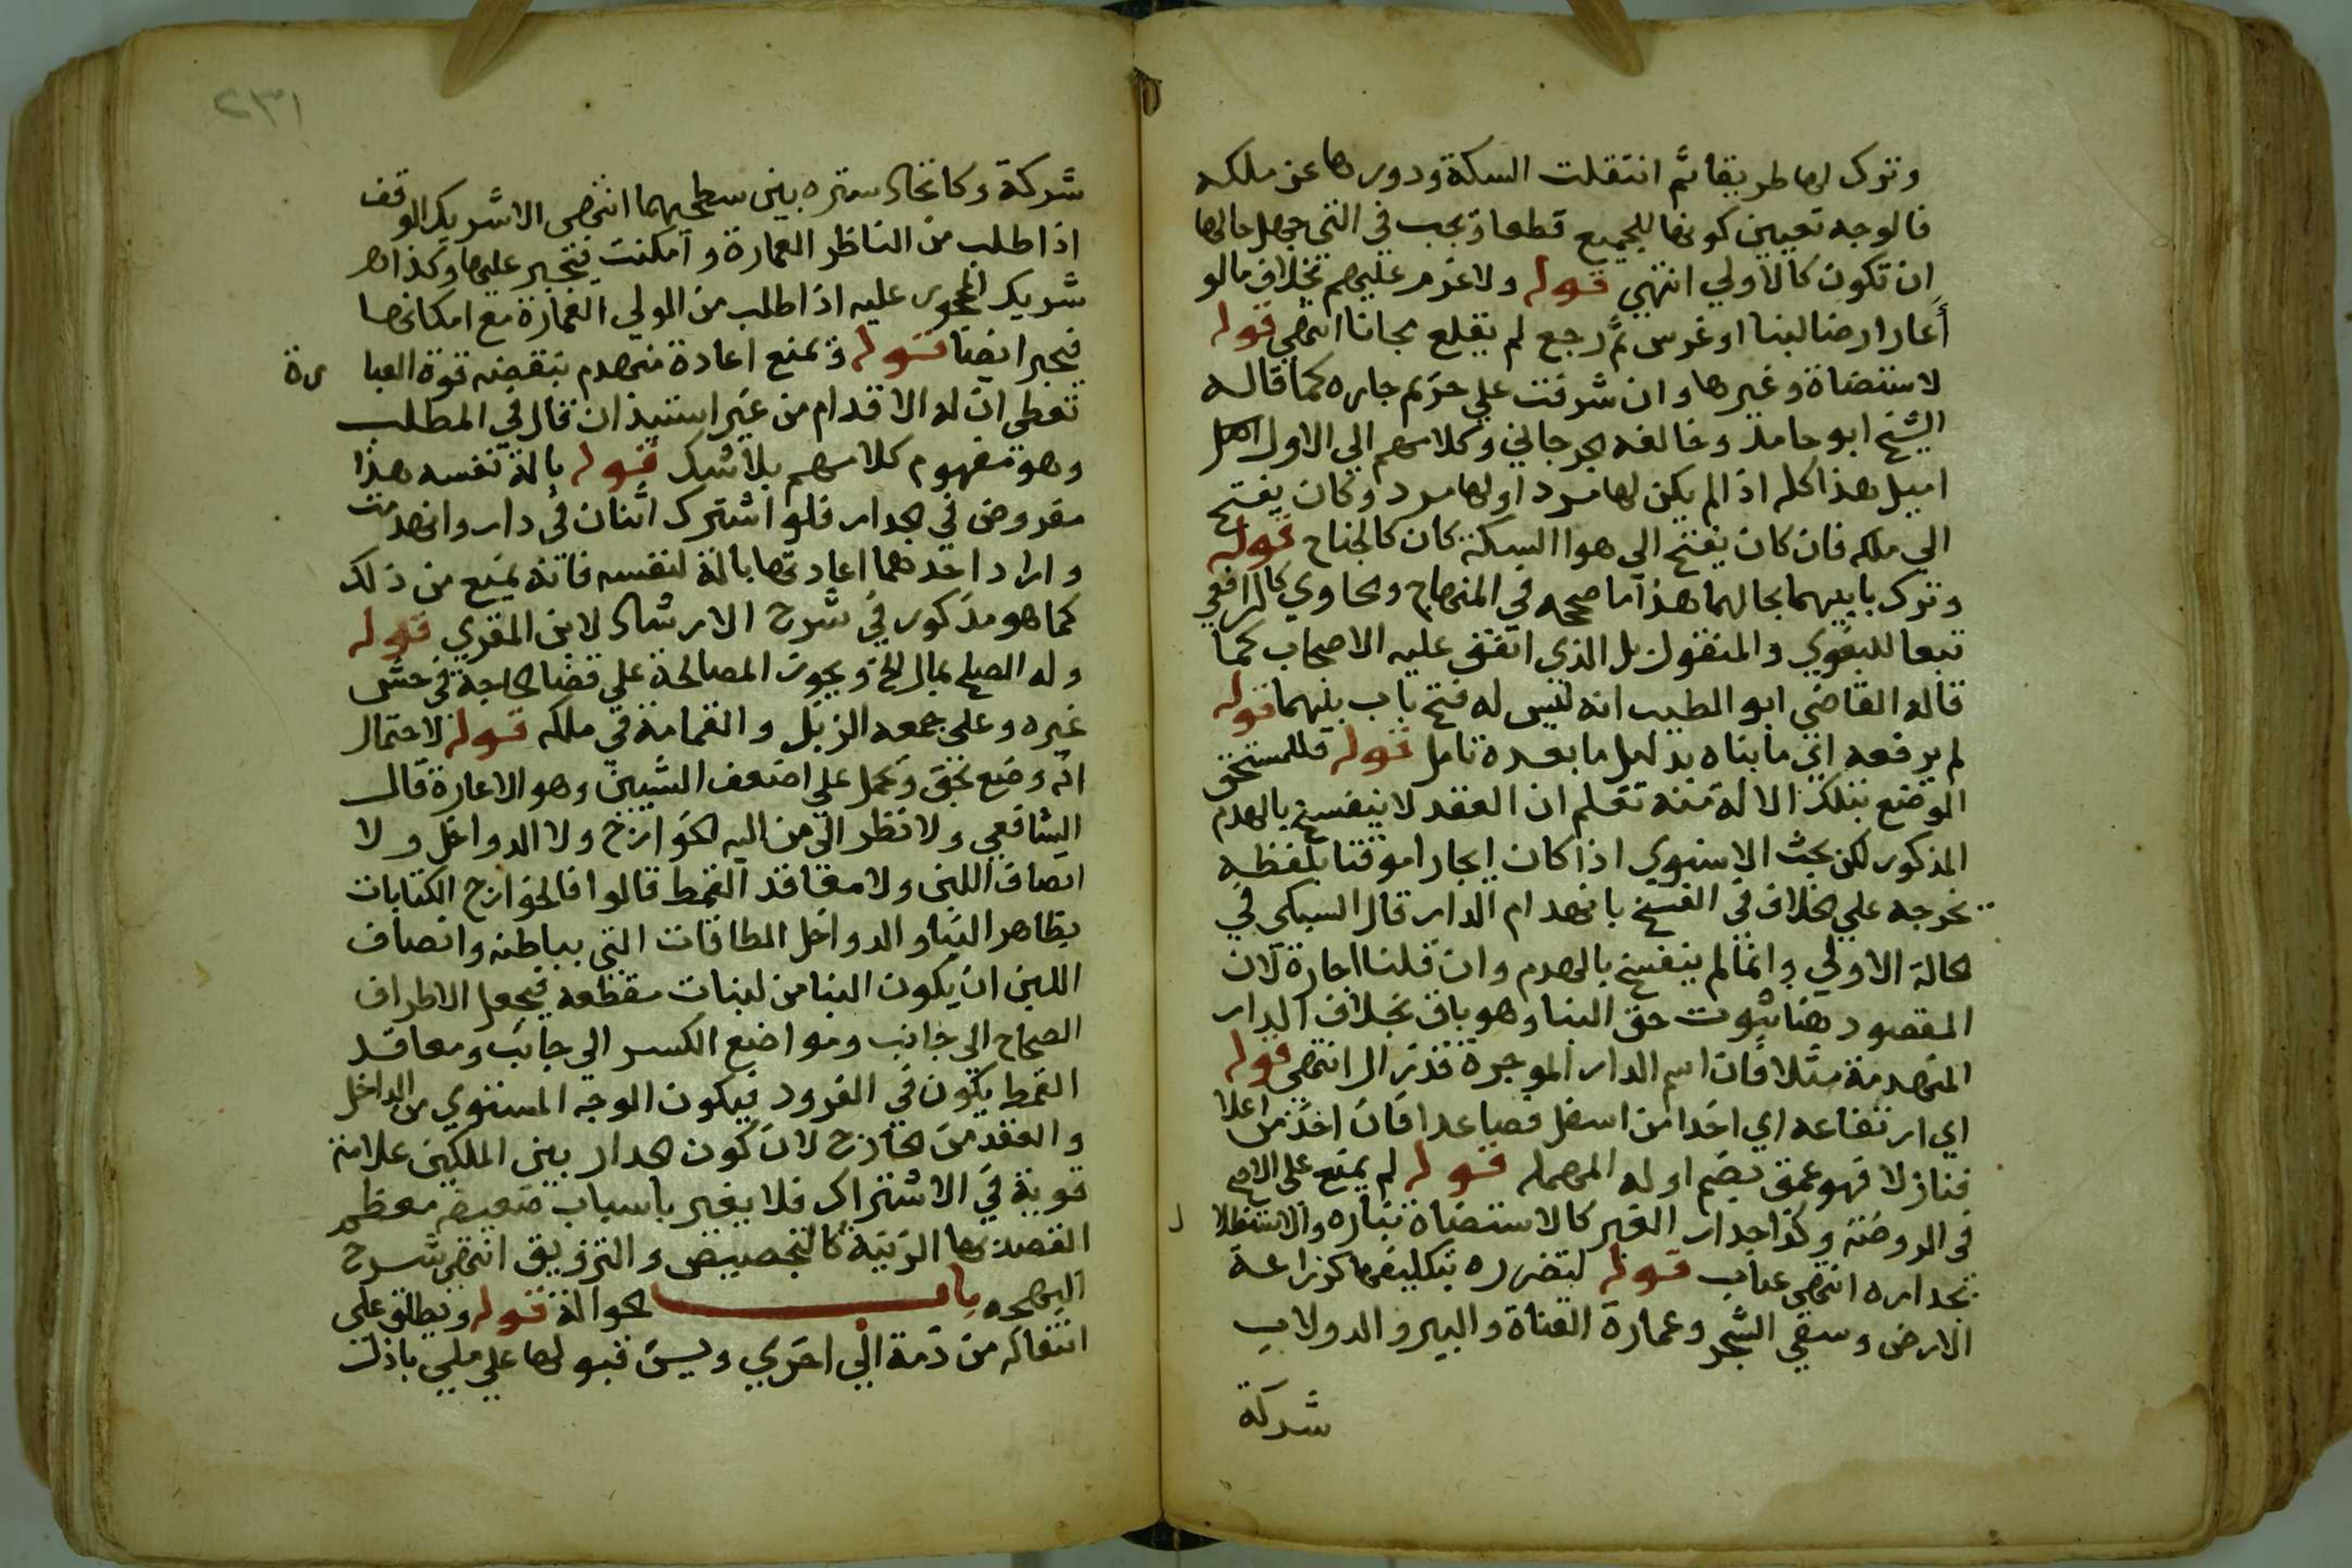 وترك لها طريقا ثم انتقلت السكة ودورها عن ملكه
فالوجه تعيين كونها للجميع قطعا ويجب في التي جهل حالها
ان تكون كالاولي انتهي قوله ولا غرم عليهم بخلاف مالو
أعار ارضا لبنا او غرس ثم رجع لم يقلع مجانا انتهي قوله
لاستضاة وغيرها وان شرفت علي حريم جاره كما قاله
الشيخ ابو حامد وخالفه الجرجاني وكلامهم الي الاول
اميل هذا كله اذا لم يكن لها او لها وكان يفتح
الي ملكه فان كان يفتح الي هوا السكة كان كالجناح قوله
وترك بابيهما بحالهما هذا ما صححه في المنهاج والحاوي كالرافعي
تبعا للبغوي والمنقول بل الذي اتفق عليه الاصحاب كما
قاله القاضي ابو الطيب انه ليس له فتح باب بينهما قوله
لم يرفعه اي ما بناه بدليل ما بعده تامل قوله فللمستحق
الوضع بتلك الالة منه تعلم ان العقد لا ينفسخ بالهدم
المذكور لكن بحث الاسنوي اذا كان ايجارا موقتا بلفظه
تخرجه علي الخلاف في الفسخ بانهدام الدار قال السبكي في
الحالة الاولي وانما لم ينفسخ بالهدم وان قلنا اجارة لان
المقصود هنا ثبوت حق البنا وهو باق بخلاف الدار
المنهدمة مثلا فان اسم الدار الموجرة قد زال انتهي قوله
اي ارتفاعه اي اخذا من اسفل فصاعدا فان اخذ من اعلا
فنازلا فهو عمق بضم اوله المهمله قوله لم يمنع علي الاصح
في الروضة وكذا جدار الغير كالاستضاة بناره والاستظلال
بجداره انتهي عباب قوله لتضرره بتكليفها كزراعة
الارض وسقي الشجر وعمارة القناة والبير والدولاب
شركة
٢٣١
شركة وكاتخاد ستره بين سطحيهما انتهي الا شريك الوقف
اذا طلب من الناظر العمارة وامكنت فيجبر عليها وكذا
شريك المحجور عليه اذا طلب من الولي العمارة مع امكانها
فيجبر ايضا قوله ويمنع اعادة منهدم بنقضه قوة العبارة
تعطي ان له الاقدام من غير استيذان قال في المطلب
وهو مفهوم كلامهم بلا شك قوله بالة نفسه هذا
مفروض في الجدار فلو اشترك اثنان في دار وانهدمت
واراد احدهما اعادتها بالة لنفسه فانه يمنع من ذلك
كما هو مذكور في شرح الارشاد لابن المقري قوله
وله الصلح بمال الخ ويجوز المصالحة علي قضا الحاجة في حش
غيره وعلي جمعه الزبل والقمامة في ملكه قوله لاحتمال
انه وضع بحق ويحمل علي اضعف الشيين وهو الاعارة قال
الشافعي ولا نظر الي من اليه الخوارج ولا الدواخل ولا
انصاف اللبن ولا معاقد القمط قالوا فالخوارج الكتابات
بظاهر البنا والدواخل الطاقات التي بباطنه وانصاف
اللبن ان يكون البنا من لبنات مقطعه فيجعل الاطراف
الصحاح الي جانب ومواضع الكسر الي جانب ومعاقد
القمط يكون في الفرود فيكون الوجه المستوي من الداخل
والعقد من الخارج لان كون الجدار بين الملكين علامة
قوية في الاشتراك فلا يغير باسباب ضعيفه معظم
القصد بها الزينة كالتجصيص والتزويق انتهي شرح
البهجه باب الحوالة قوله ويطلق علي
انتقاله من ذمة الي اخري ويسن قبولها علي ملي باذل